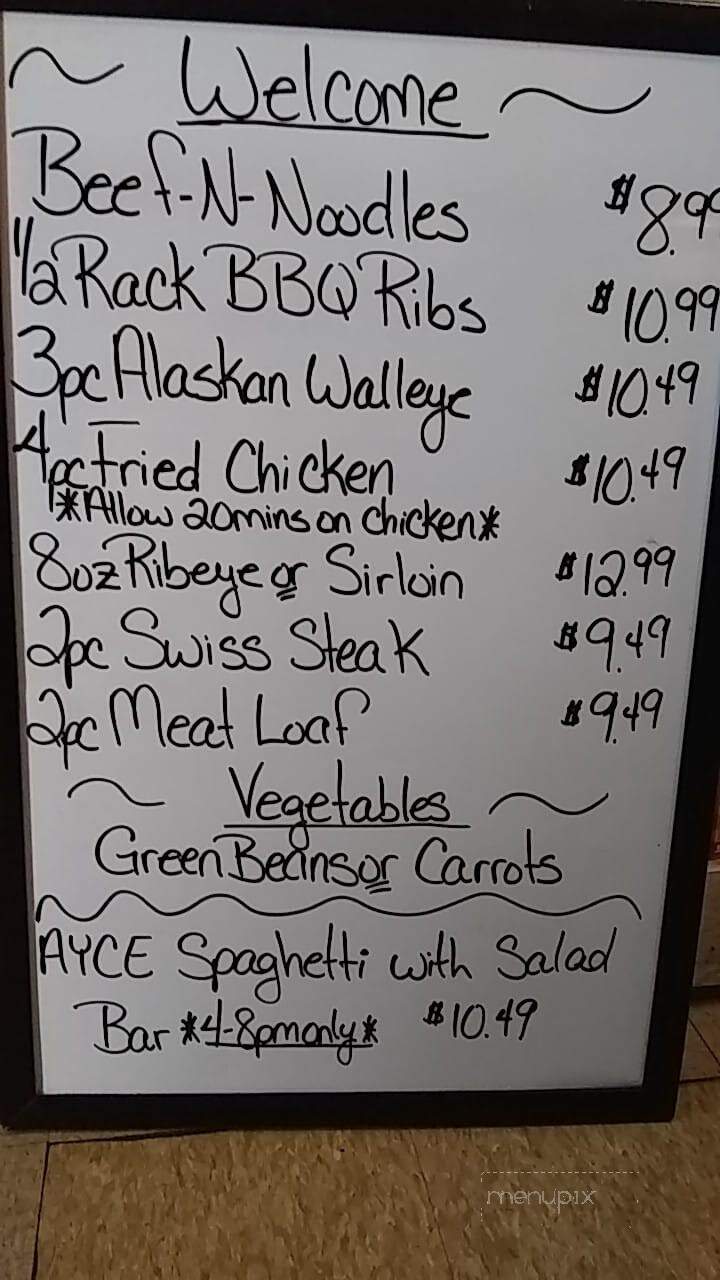 ~ Welcome ~
Beef-N-Noodles $8.99
1/2 Rack BBQ Ribs $10.99
3pc Alaskan Walleye $10.49
4pc Fried Chicken $10.49
*Allow 20mins on chicken*
8oz Ribeye or Sirloin $12.99
2pc Swiss Steak $9.49
2pc Meat Loaf $9.49
~ Vegetables ~
Green Beans or Carrots
AYCE Spaghetti with Salad
Bar *4-8pm only* $10.49
menupix